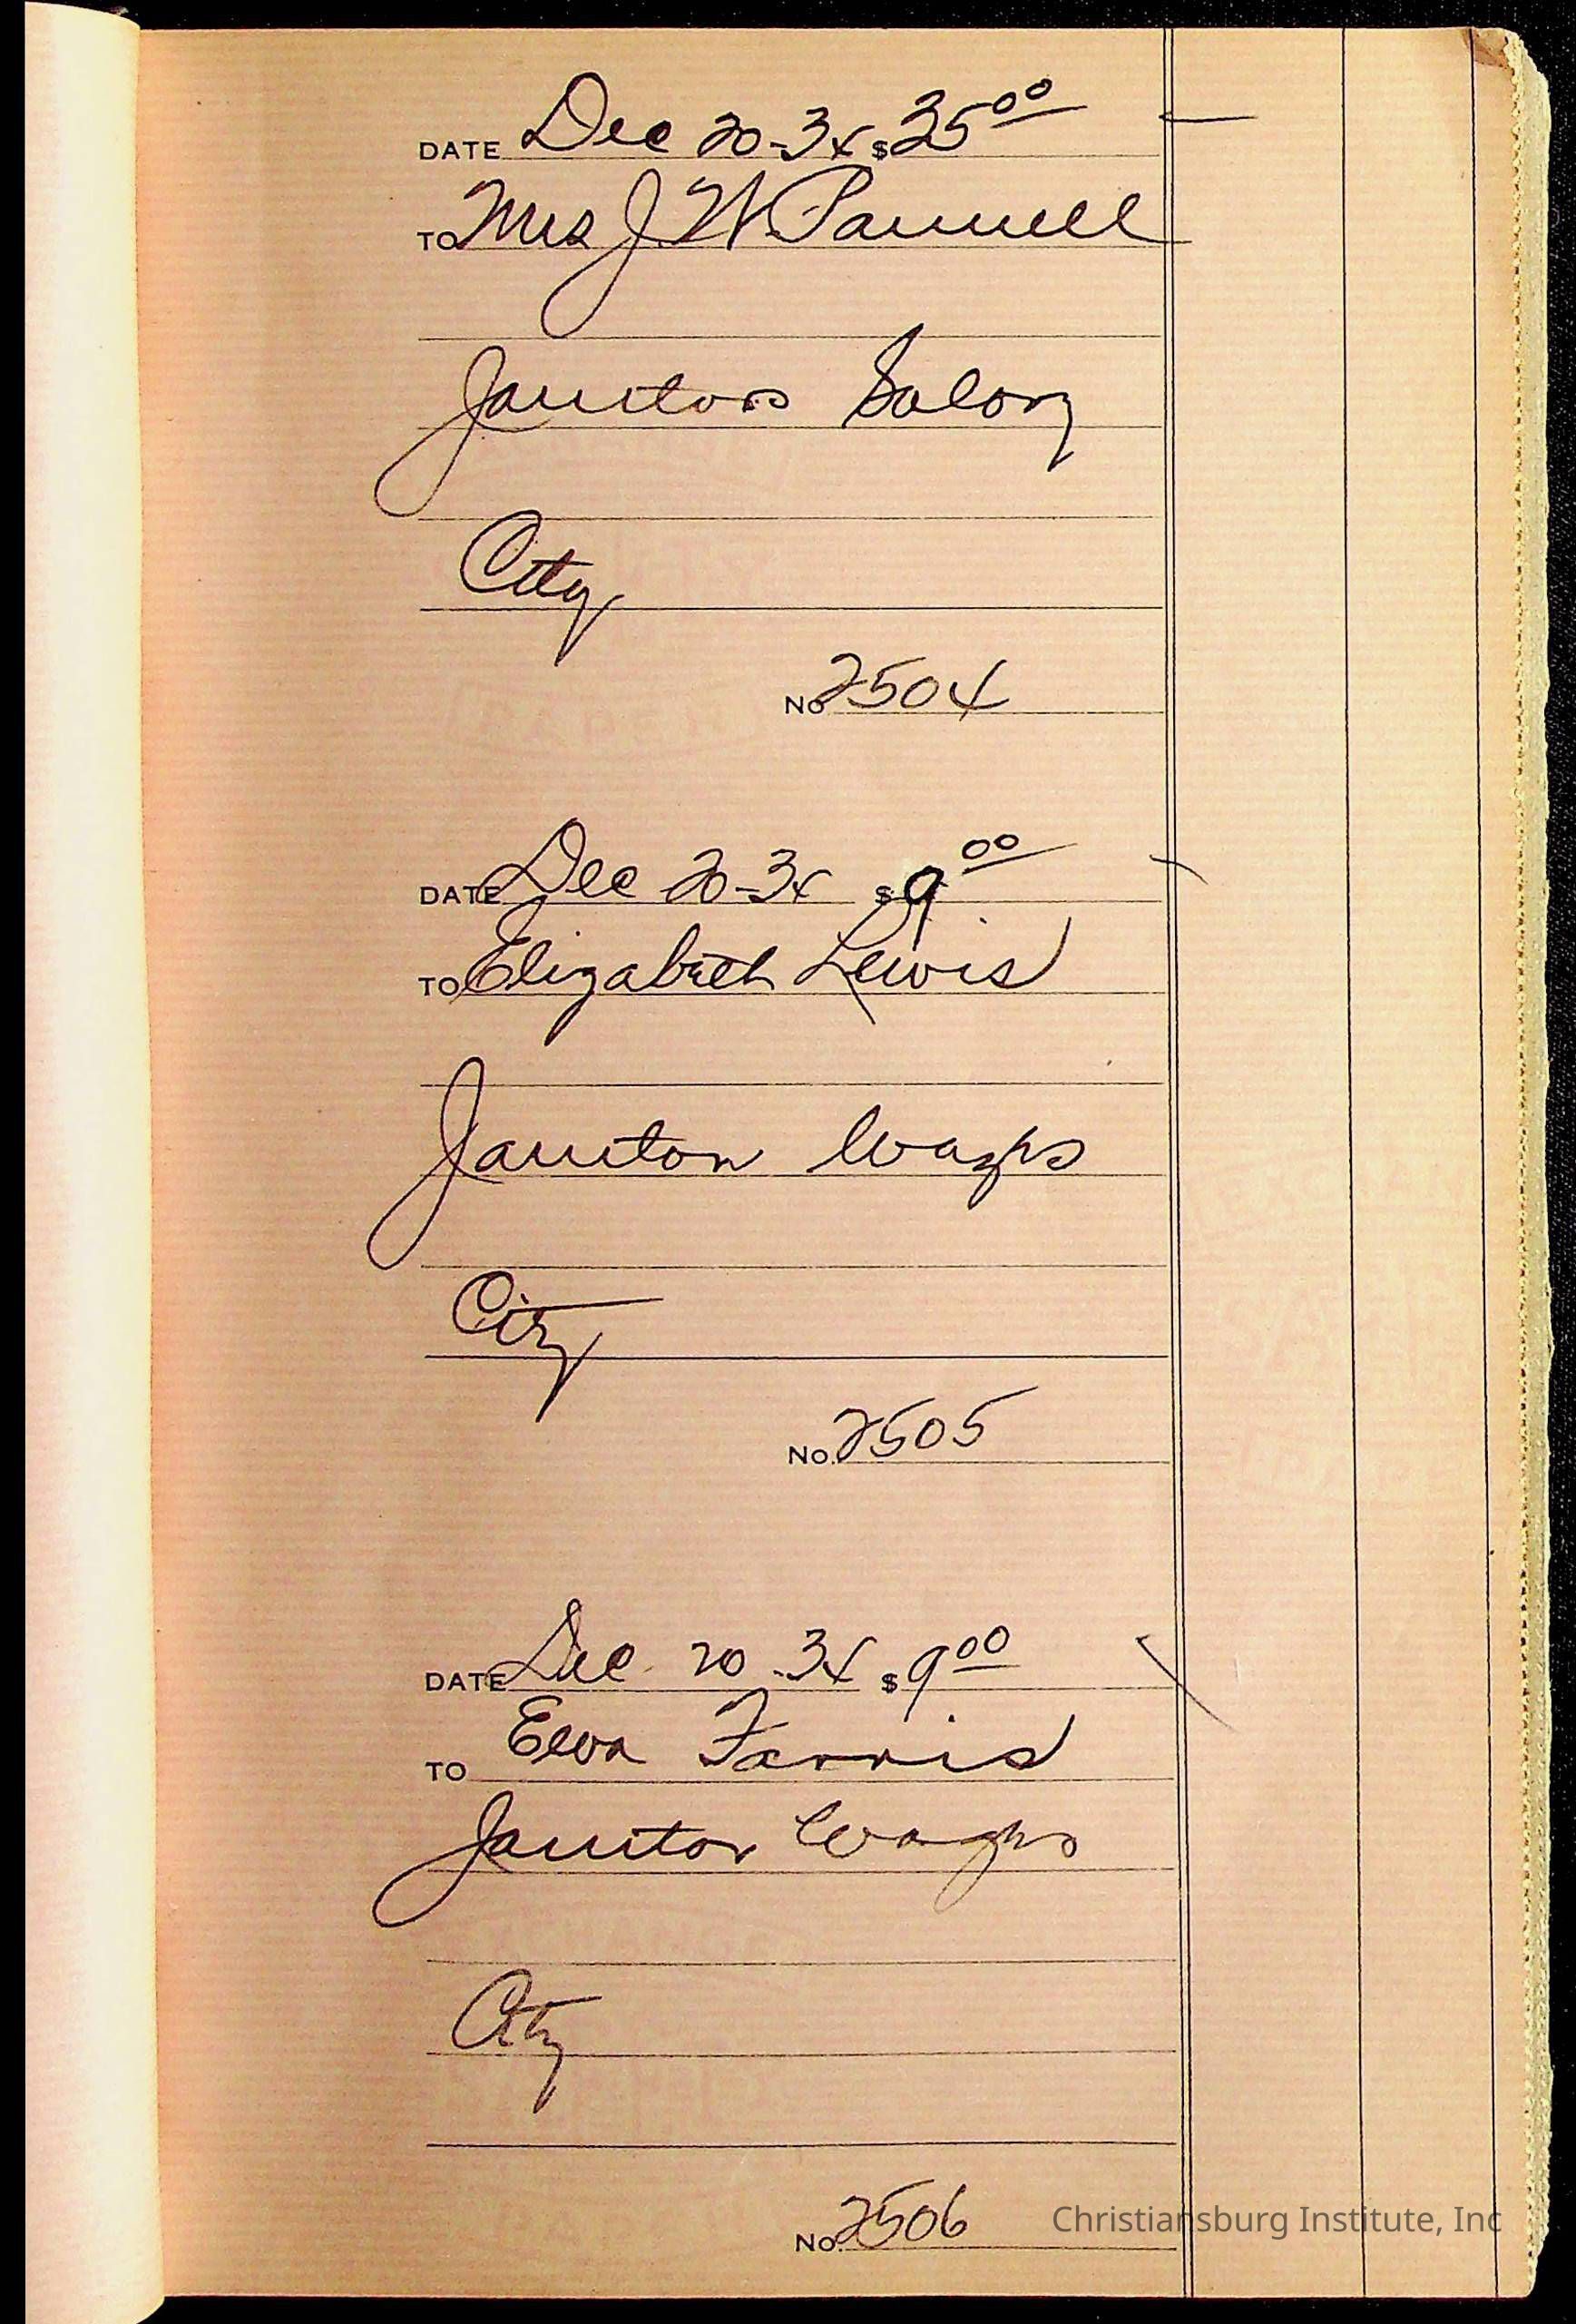 DATE Dec 20-34 $ 25 00
TO Mrs J. W. Pannell
Janitors Salary
City
No 2504
DATE Dec 20-34 $ 9 00
TO Elizabeth Lewis
Janitor Wages
City
No. 2505
DATE Dec 20-34 $ 9 00
TO Elva Farris
Janitor Wages
City
No. 2506
Christiansburg Institute, Inc